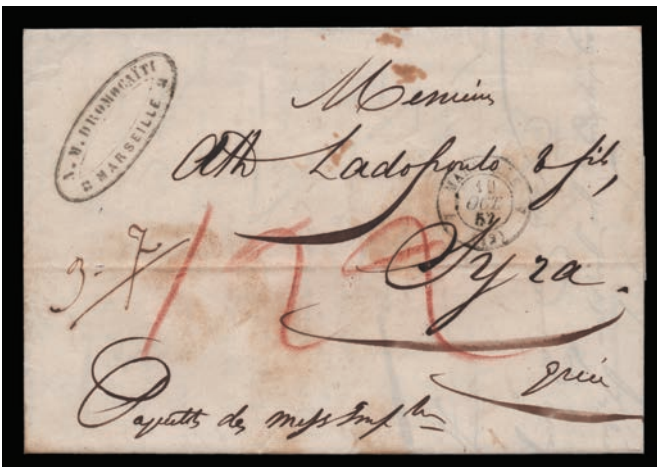 N. M. DROMOCAÏTI
MARSEILLE
Messieurs
Ath Ladopoulo & fils,
MARSEILLE
10
OCT
(12)
Syra.
3= 7
122
Grèce
Paquebots des mess Imp les